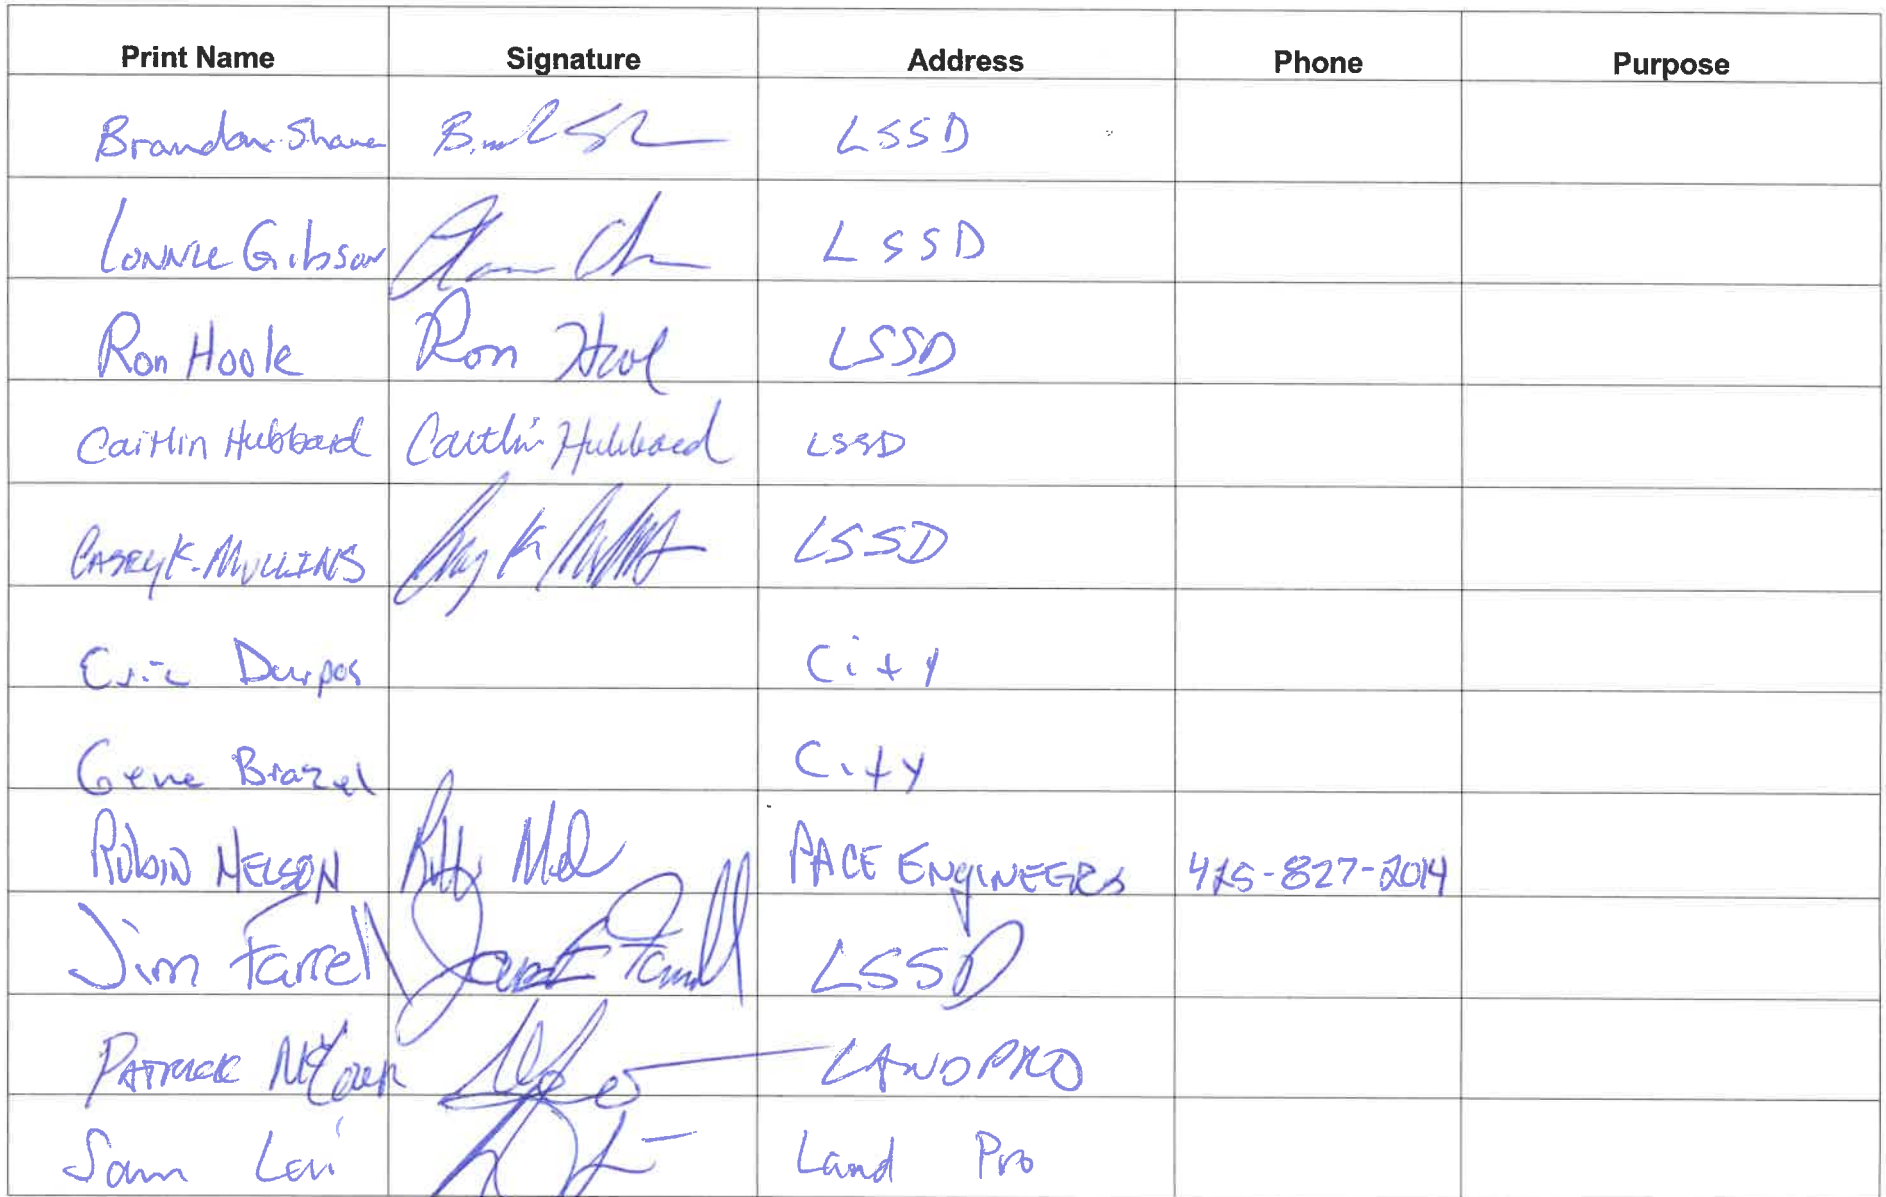 Print Name Signature Address Phone Purpose
Brandon Shane LSSD
Lonnie Gibson LSSD
Ron Hoole Ron Hool LSSD
Caitlin Hubbard Caitlin Hubbard LSSD
CASEY K. MULLINS LSSD
Eric Durpos City
Gene Brazel City
Robin NELSON PACE ENgiNEERs 425-827-2014
Jim Farrell LSSD
PATRICK LANDPRO
Sam Land Pro